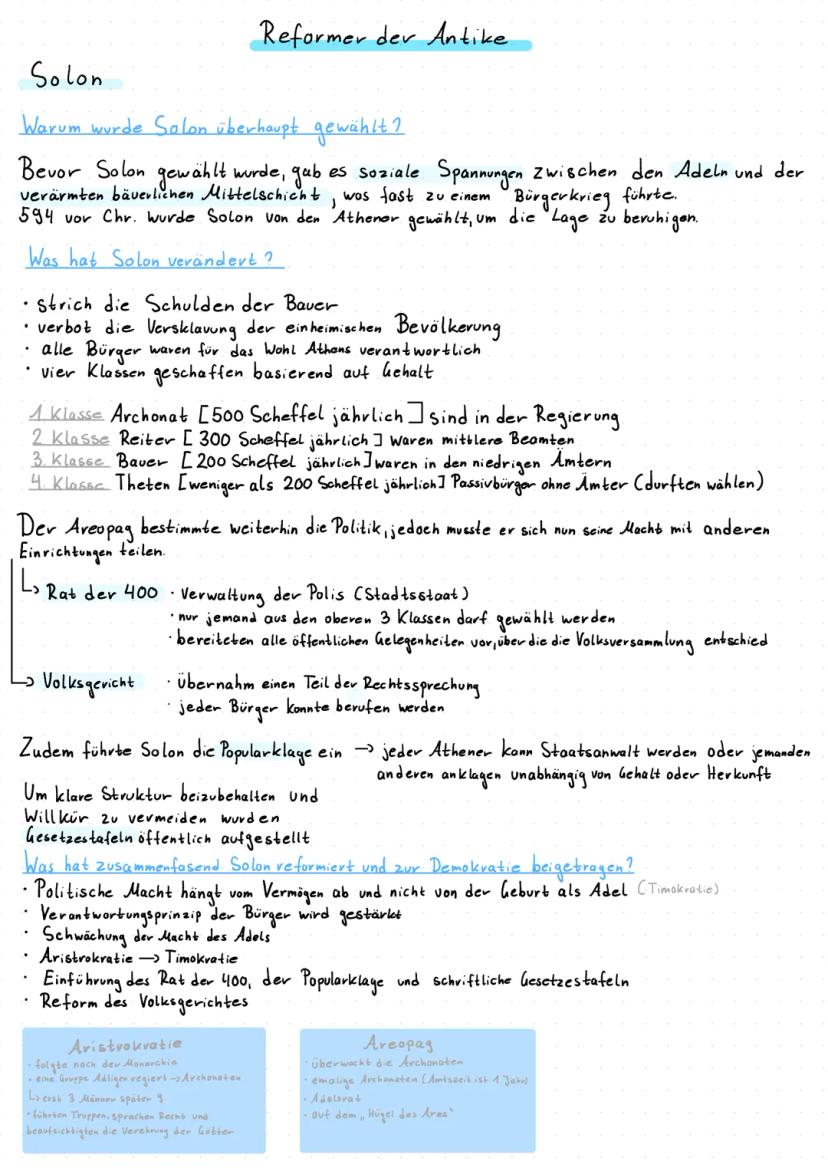 Reformer der Antike
Solon
Warum wurde Solon überhaupt gewählt?
Bevor Solon gewählt wurde, gab es soziale Spannungen zwischen den Adeln und der
verärmten bäuerlichen Mittelschicht, was fast zu einem Bürgerkrieg führte.
594 vor Chr. wurde Solon von den Athener gewählt, um die Lage zu beruhigen.
Was hat Solon verändert?
· strich die Schulden der Bauer
· verbot die Versklavung der einheimischen Bevölkerung
· alle Bürger waren für das Wohl Athens verantwortlich
· vier Klassen geschaffen basierend auf Gehalt
1 Klasse Archonat [500 Scheffel jährlich] sind in der Regierung
2 Klasse Reiter [300 Scheffel jährlich] waren mittlere Beamten
3. Klasse Bauer [200 Scheffel jährlich] waren in den niedrigen Ämtern
4. Klasse Theten [weniger als 200 Scheffel jährlich] Passivbürger ohne Ämter (durften wählen)
Der Areopag bestimmte weiterhin die Politik, jedoch musste er sich nun seine Macht mit anderen
Einrichtungen teilen.
↳ Rat der 400 · Verwaltung der Polis (Stadtsstaat)
· nur jemand aus den oberen 3 Klassen darf gewählt werden
· bereiteten alle öffentlichen Gelegenheiten vor, über die die Volksversammlung entschied
↳ Volksgericht · übernahm einen Teil der Rechtssprechung
· jeder Bürger konnte berufen werden
Zudem führte Solon die Popularklage ein → jeder Athener kann Staatsanwalt werden oder jemanden
anderen anklagen unabhängig von Gehalt oder Herkunft
Um klare Struktur beizubehalten und
Willkür zu vermeiden wurden
Gesetzestafeln öffentlich aufgestellt
Was hat zusammenfasend Solon reformiert und zur Demokratie beigetragen?
· Politische Macht hängt vom Vermögen ab und nicht von der Geburt als Adel (Timokratie)
· Verantwortungsprinzip der Bürger wird gestärkt
· Schwächung der Macht des Adels
· Aristrokratie → Timokratie
· Einführung des Rat der 400, der Popularklage und schriftliche Gesetzestafeln
· Reform des Volksgerichtes
Aristrokratie
· folgte nach der Monarchie
· eine Gruppe Adliger regiert → Archonaten
↳ erst 3 Männer später 9
· führten Truppen, sprachen Recht und
beaufsichtigten die Verehrung der Götter
Areopag
· überwacht die Archonaten
· emalige Archonaten (Amtszeit ist 1 Jahr)
· Adelsrat
· auf dem „Hügel des Ares"